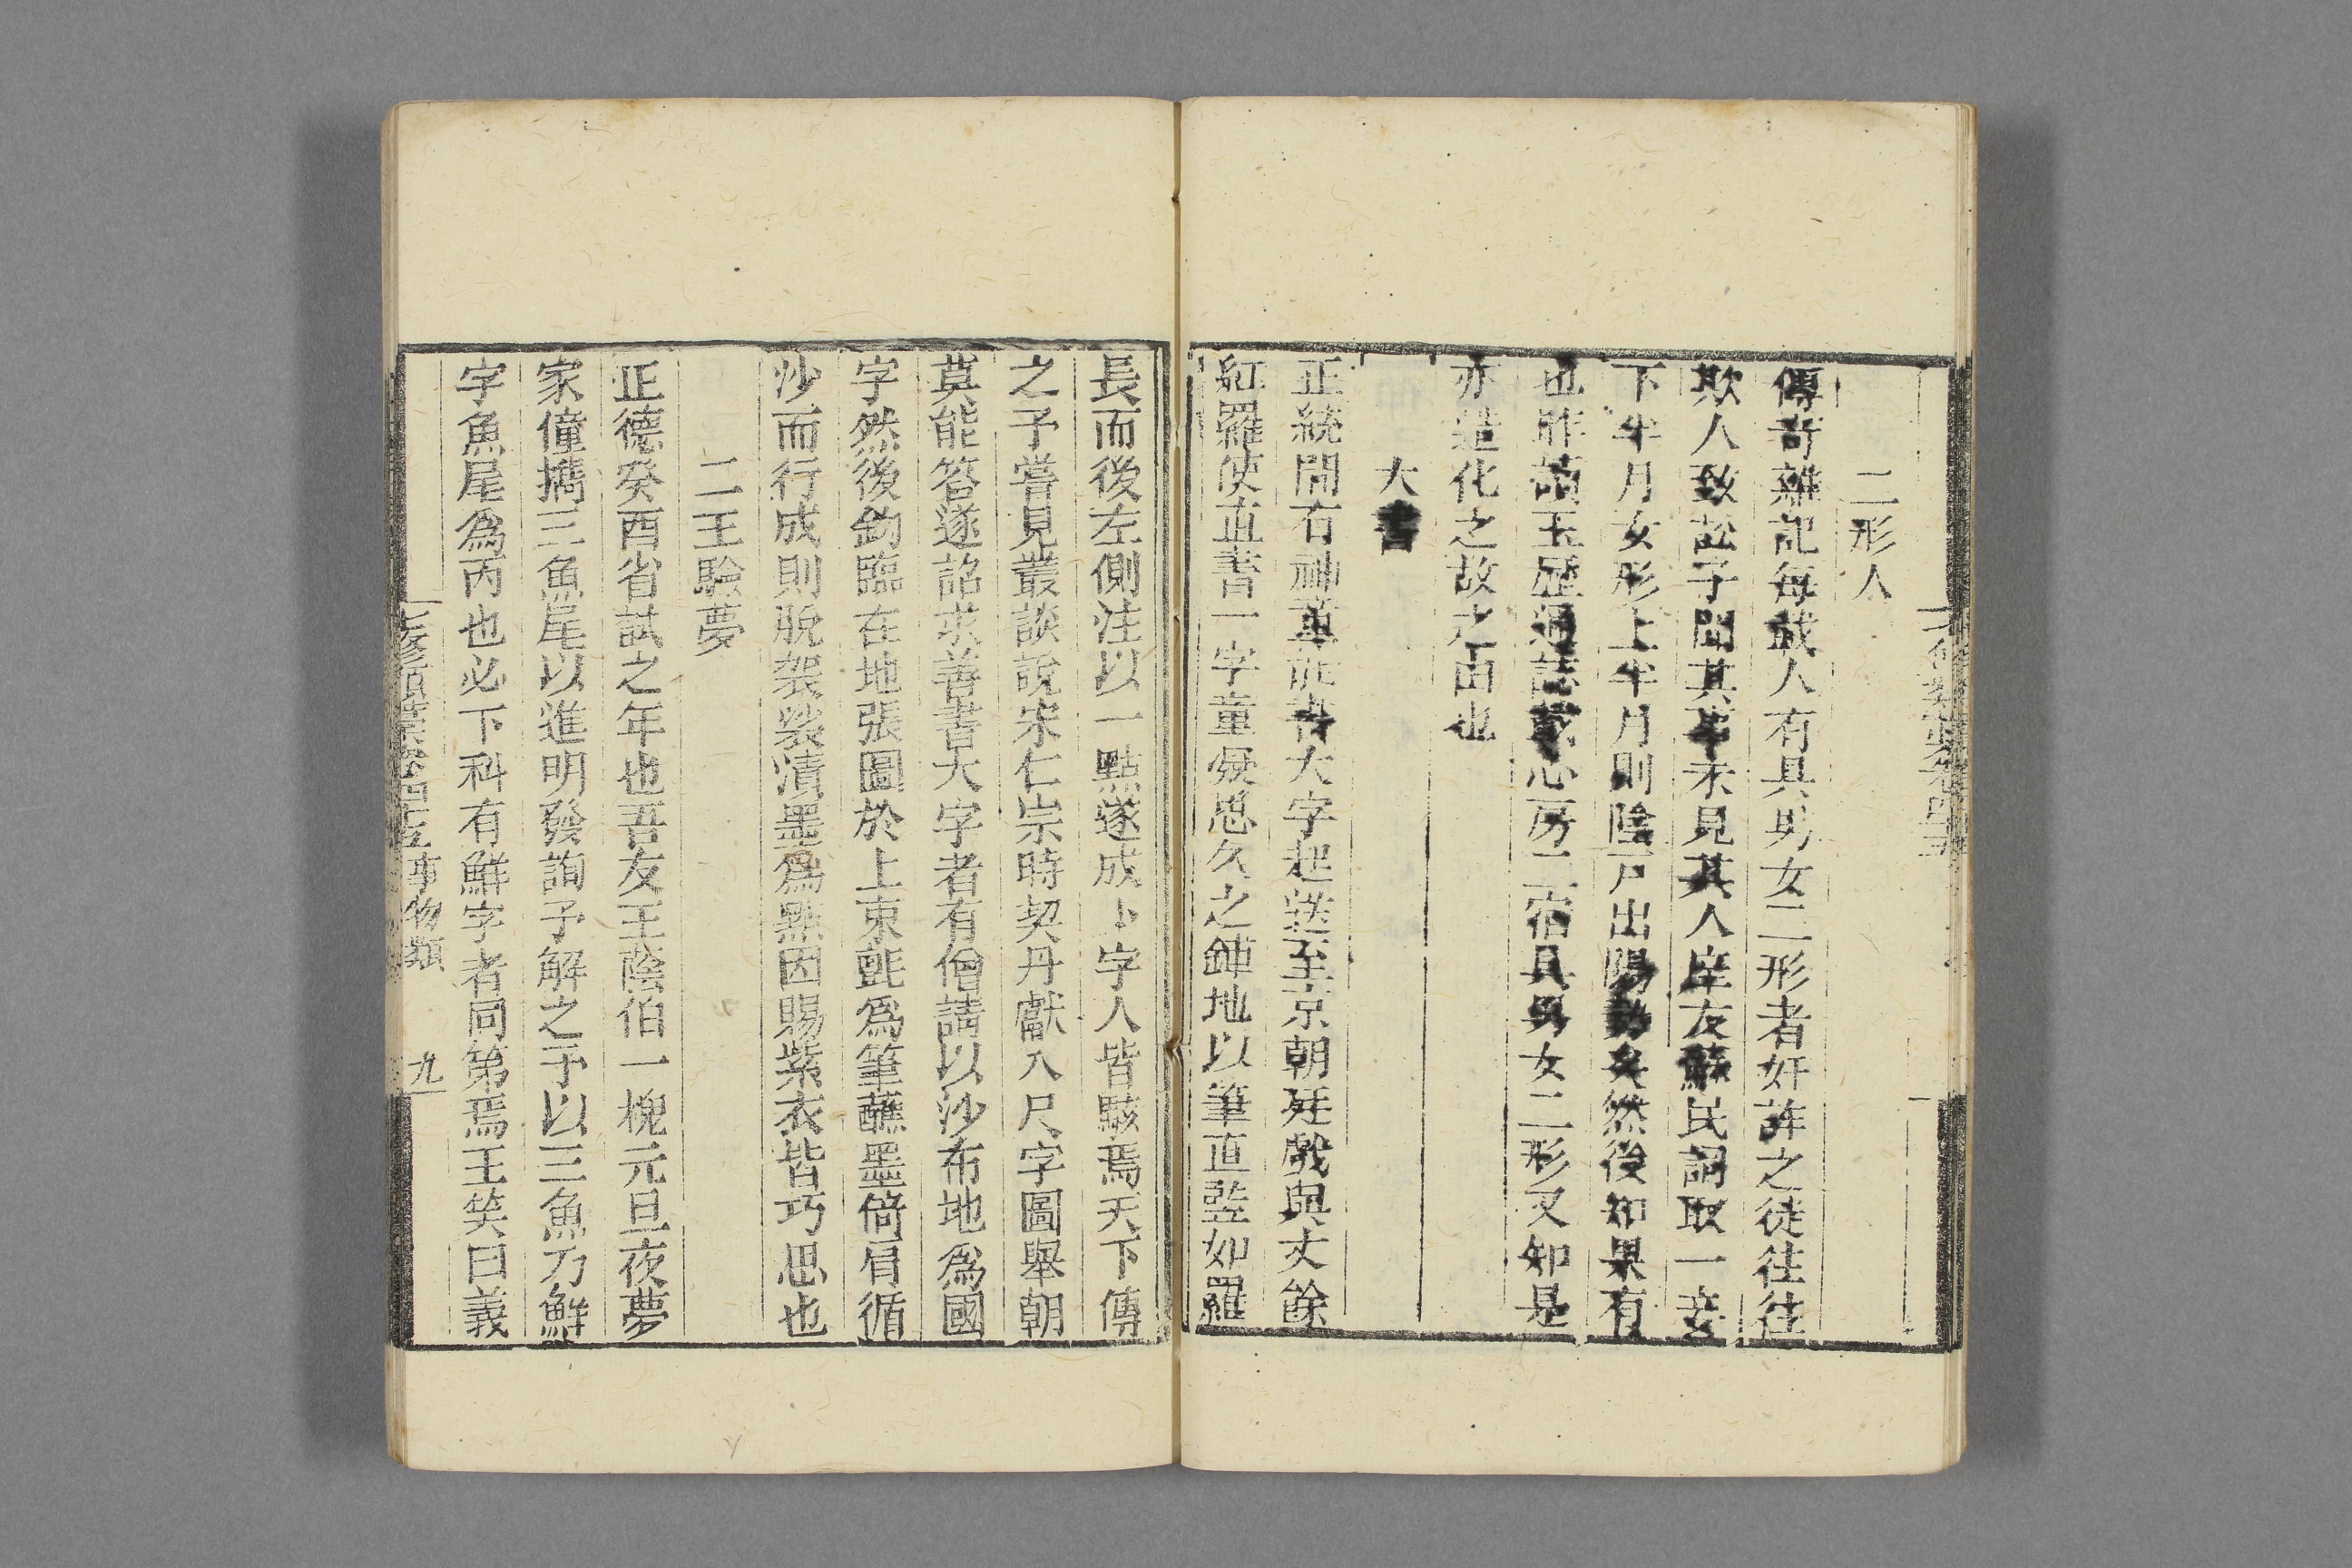 二形人
傳奇雜記每載人有具男女二形者奸詐之徒往往
欺人致訟予聞其事未見其人庠友蘇民詞取一妾
下半月女形上半月則陰戶出陽勢矣然後知果有
也昨讀玉歷通誌載心房二宿具男女二形又知是
亦造化之故之由也
大書
正統間有神童能書大字起送至京朝廷戲與丈餘
紅羅使直書一字童凝思久之鋪地以筆直竪如羅
長而後左側注以一點遂成卜字人皆駭焉天下傳
之予嘗見叢談說宋仁宗時契丹獻八尺字圖舉朝
莫能答遂詔求善書大字者有僧請以沙布地為國
字然後鈎臨在地張圖於上束氈為筆蘸墨倚肩循
沙而行成則脫袈裟漬墨為點因賜紫衣皆巧思也
二王驗夢
正德癸酉省試之年也吾友王蔭伯一槐元旦夜夢
家僮擕三魚尾以進明發詢予解之予以三魚乃鮮
字魚尾為丙也必下科有鮮字者同第焉王笑曰義
七修類藁卷四十五 事物類 九